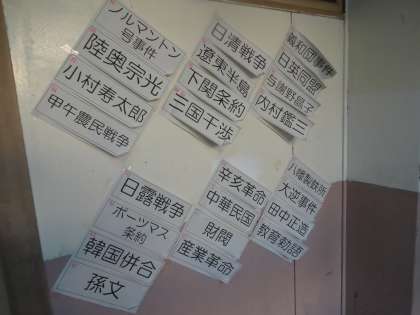 ノルマントン
号事件
陸奥宗光
小村寿太郎
甲午農民戦争
日清戦争
遼東半島
下関条約
三国干渉
義和団事件
日英同盟
与謝野晶子
内村鑑三
日露戦争
ポーツマス
条約
韓国併合
孫文
辛亥革命
中華民国
財閥
産業革命
八幡製鉄所
大逆事件
田中正造
教育勅語